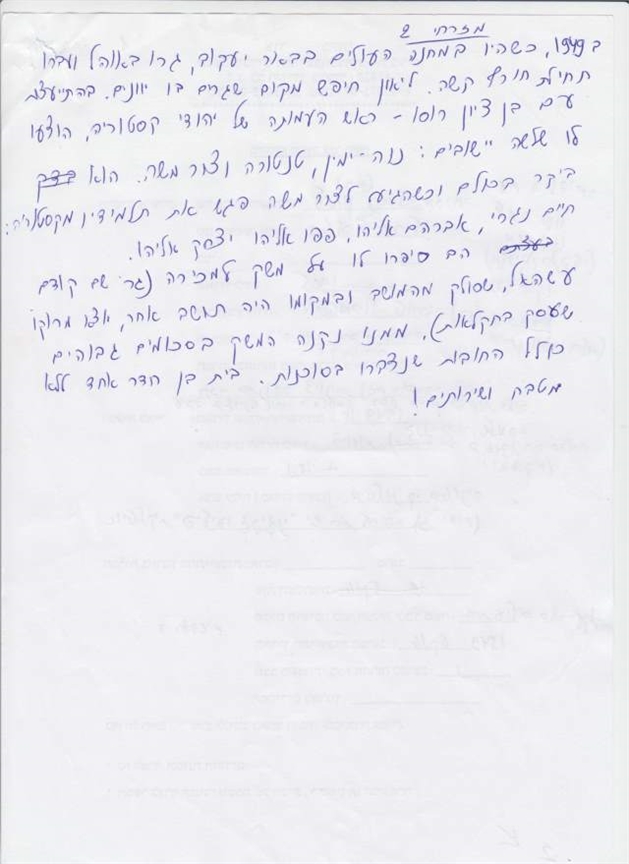 מזרחי 2
ב 1949, כשהיו במחנה העולים בבאר יעקוב, גרו באוהל ועברו
תחילת חורף קשה. ליאון חיפש מקום שגרים בו יוונים. בהתייעצות
עם בן ציון רוסו - ראש העמותה של יהודי קסטוריה, הוצעו
לו שלשה יישובים: נוה-ימין, טנטורה וצור משה. הוא בדק
ביקר בכולם וכשהגיע לצור משה פגש את תלמידיו מקסטוריה:
חיים נגרי, אברהם אליהו, פפו אליהו יצחק אליהו.
הם סיפרו לו על משק למכירה (גר שם קודם
עשהאל, שסולק מהמושב ובמקומו היה תושב אחר, יוצא מרוקו
שעסק בחקלאות). ממנו נקנה המשק בסכומים גבוהים
כולל החובות שנצברו בסוכנות. בית בן חדר אחד ללא
מטבח ושירותים!